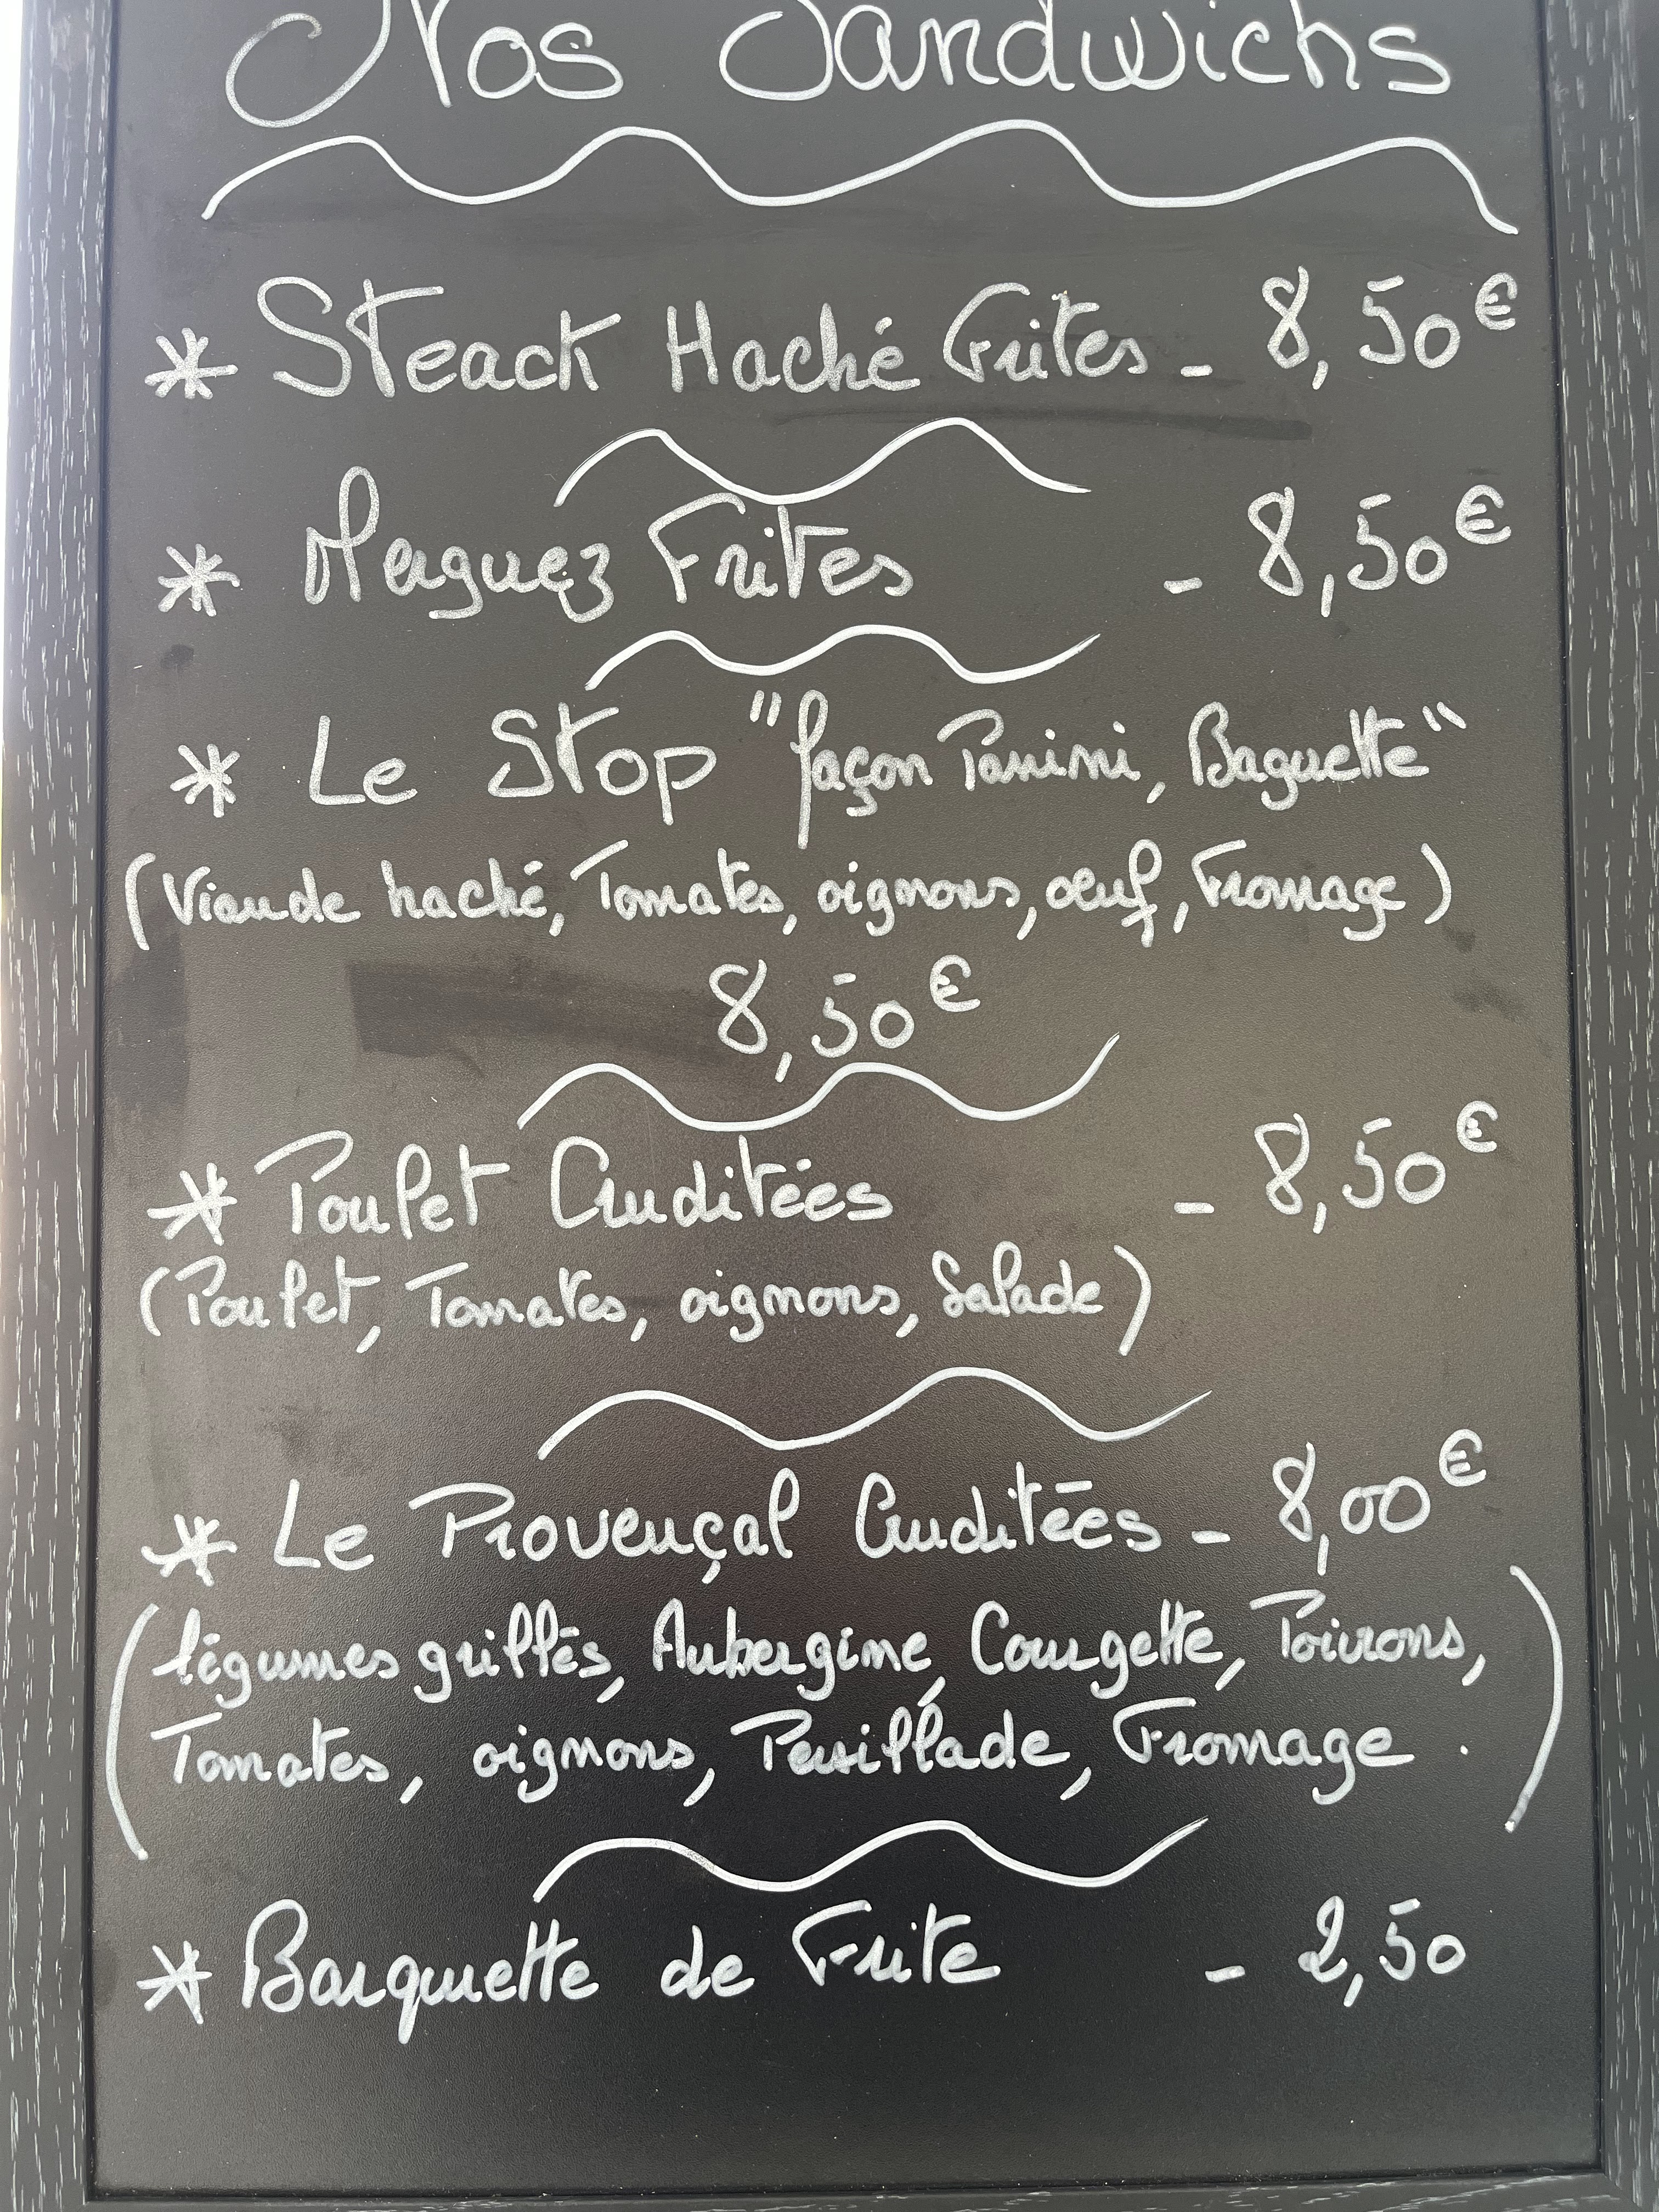 Nos Sandwichs
* Steack Haché Frites - 8,50€
* Merguez Frites - 8,50€
* Le Stop "façon Panini, Baguette"
(Viande haché, Tomates, oignons, œuf, Fromage)
8,50€
* Poulet Cruditées - 8,50€
(Poulet, Tomates, oignons, Salade)
* Le Provençal Cruditées - 8,00€
(légumes grillés, Aubergine, Courgette, Poivrons,
Tomates, oignons, Persillade, Fromage.)
* Barquette de Frite - 2,50